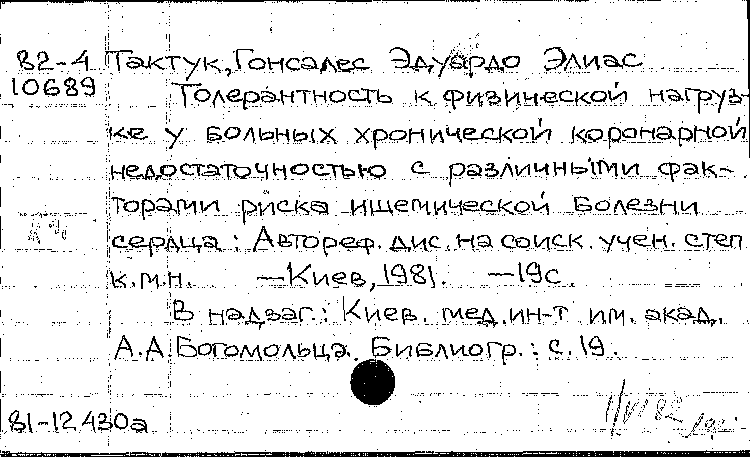 82-4 Тактук, Гонсалес Эдуардо Элиас
10689 Толерантность к физической нагруз-
ке у больных хронической коронарной
недостаточностью с различными фак-
торами риска ишемической болезни
сердца: Автореф. дис. на соиск. учен. степ
к.м.н. — Киев, 1981. — 19с.
В надзаг.: Киев. мед. ин-т им. акад.
А.А. Богомольца. Библиогр.: с. 19.
81-12430а